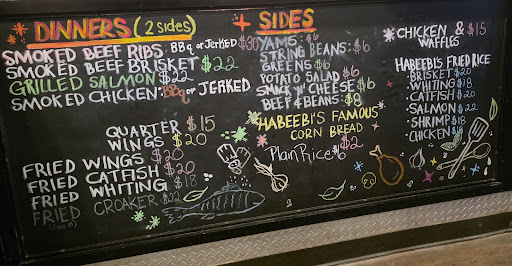 DINNERS (2 sides)
SMOKED BEEF RIBS: BBQ or JERKED $30
SMOKED BEEF BRISKET $22
GRILLED SALMON $22
SMOKED CHICKEN: BBQ or JERKED
QUARTER $15
WINGS $20
FRIED WINGS $20
FRIED CATFISH $20
FRIED WHITING $18
FRIED CROAKER $22
SIDES
YAMS: $6
STRING BEANS: $6
GREENS $6
POTATO SALAD $6
SMACK 'N' CHEESE $6
BEEF & BEANS: $8
HABEEBI'S FAMOUS
CORN BREAD $6
Plain Rice $2
CHICKEN & $15
WAFFLES
HABEEBI'S FRIED RICE
BRISKET $20
WHITING $18
CATFISH $20
SALMON $22
SHRIMP $18
CHICKEN $18